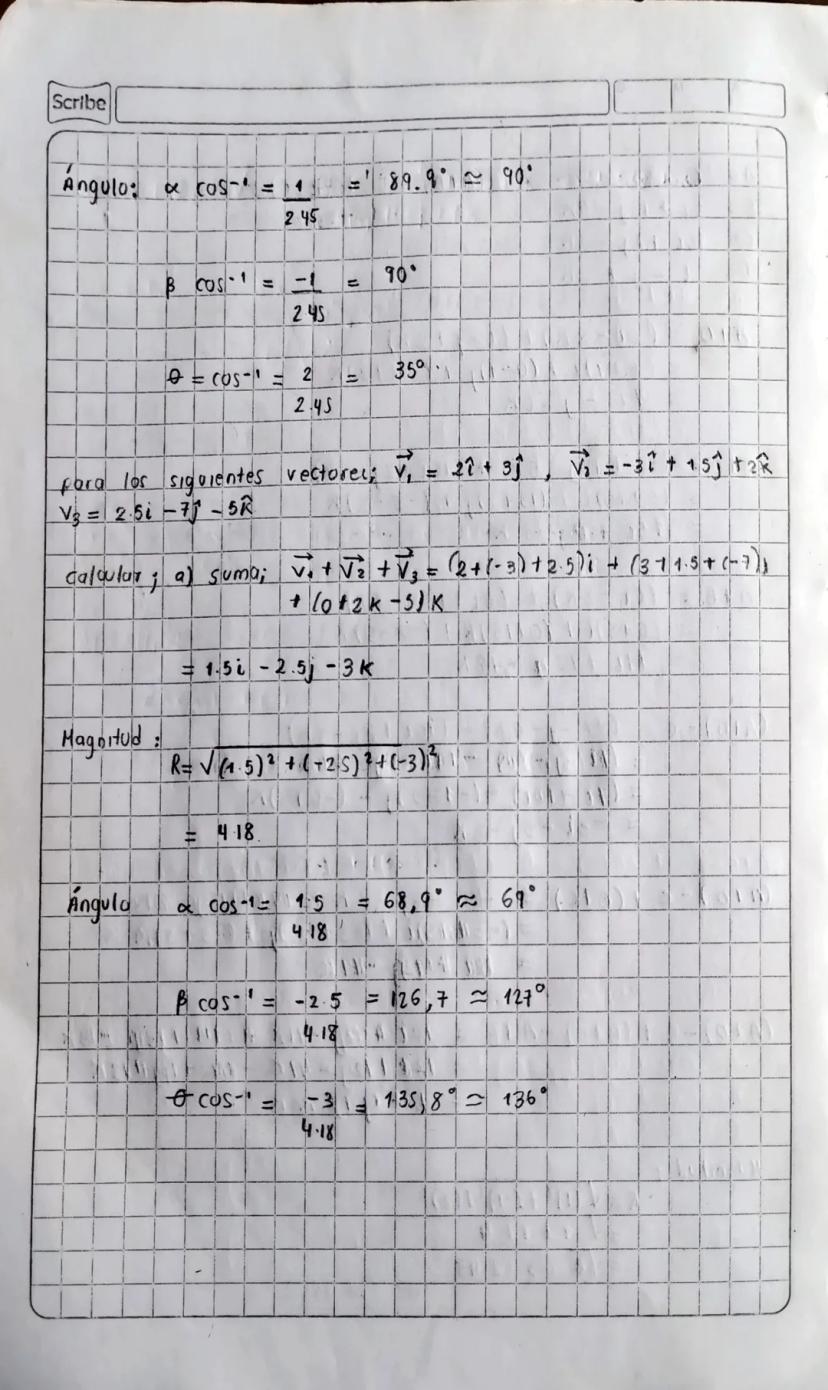 Scribe
Ángulo: α cos⁻¹ = 1 = 89.9° ≃ 90°
2 45
β cos⁻¹ = -1 = 90°
2 45
θ = cos⁻¹ = 2 = 35°
2.45
para los siguientes vectores; V⃗₁ = 2î + 3ĵ , V⃗₂ = -3î + 1.5ĵ + 2k̂
V₃ = 2.5i - 7ĵ - 5k̂
Calcular ; a) suma; V⃗₁ + V⃗₂ + V⃗₃ = (2+(-3)+2.5)i + (3+1.5+(-7))j
+ (0+2k-5)k
= 1.5i - 2.5j - 3k
Magnitud :
R= √(1.5)² + (-2.5)² + (-3)²
= 4.18
Ángulo α cos⁻¹ = 1.5 = 68,9° ≈ 69°
4.18
β cos⁻¹ = -2.5 = 126,7 ≃ 127°
4.18
θ cos⁻¹ = -3 = 135,8° ≃ 136°
4.18